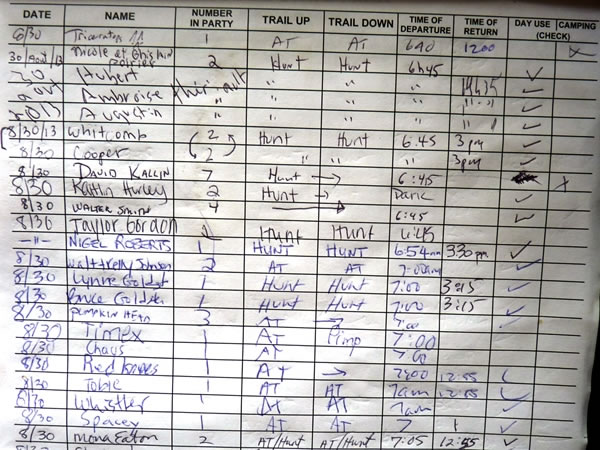 DATE NAME NUMBER IN PARTY TRAIL UP TRAIL DOWN TIME OF DEPARTURE TIME OF RETURN DAY USE CAMPING (CHECK)
8/30 1 AT AT 1200
30/Aout/13 Nicole et 2 Hunt Hunt 6h45 ✓
30 Hubert " " ✓
aout Ambroise " " " ✓
2013 Augustin " " " ✓
8/30/13 Whitcomb 2 Hunt Hunt 6:45 3pm ✓
8/30 Cooper 2 " " 3pm ✓
8/30 David Kallin 7 Hunt → 6:45 x
8/30 Kaitlin Hurley 2 Hunt →
8/30 Walter Smith 4 6:45 ✓
8/30 Taylor Gordon Hunt Hunt 6:45
—"— NIGEL ROBERTS 1 HUNT HUNT 6:54am 330pm ✓
8/30 2 AT AT 7:00am ✓
8/30 Lynne 1 Hunt Hunt 7:00 3:15 ✓
8/30 Bruce 1 Hunt Hunt 7:00 3:15 ✓
8/30 PUMPKIN HEAD 3 AT → 7:00 ✓
8/30 Timex 1 AT Pimp 7:00
8/30 Chaus 1 AT 700
8/30 1 AT → 12:55 ✓
8/30 Tobie 1 AT AT 7am 12:55 ✓
8/30 Whistler 1 AT AT 7am ✓
8/30 Spacey 1 AT AT 7 1 ✓
8/30 Mona Eaton 2 AT/Hunt AT/Hunt 7:05 12:55 ✓